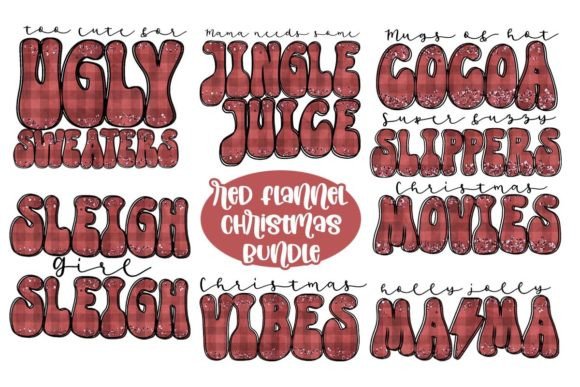 too cute for
UGLY
SWEATERS
Mama needs some
JINGLE
JUICE
Mugs of hot
COCOA
Super fuzzy
SLIPPERS
Christmas
MOVIES
SLEIGH
girl
SLEIGH
RED FLANNEL
CHRISTMAS
BUNDLE
Christmas
VIBES
holly jolly
MAMA